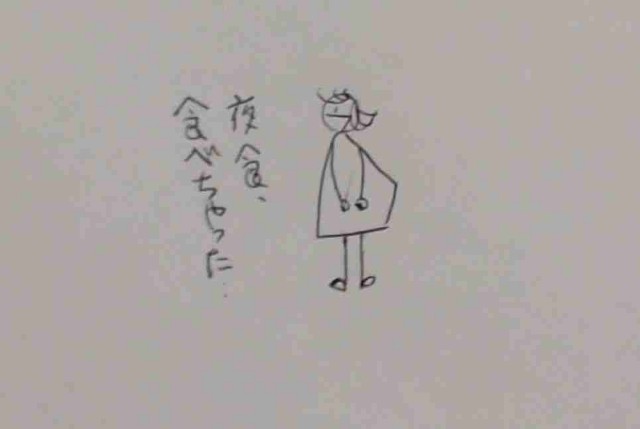 夜食、
食べちゃった…